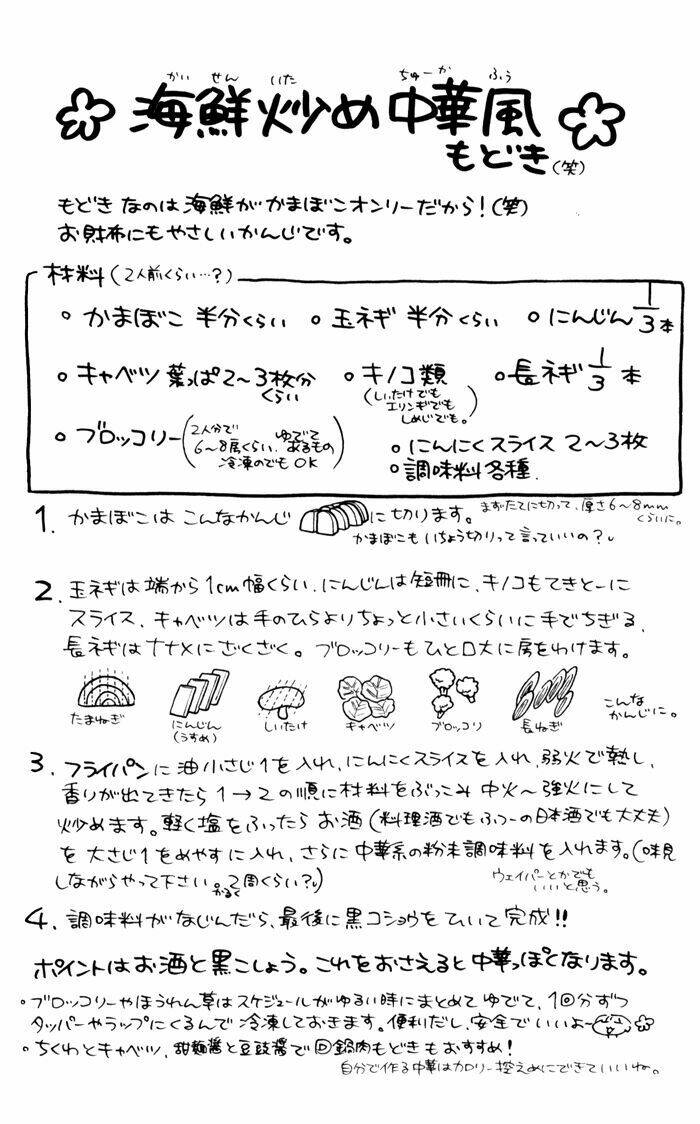 かい せん いた ちゅーか ふう
海鮮炒め中華風
もどき(笑)
もどきなのは海鮮がかまぼこオンリーだから!(笑)
お財布にもやさしいかんじです。
材料(2人前くらい…?)
○かまぼこ 半分くらい ○玉ネギ 半分くらい ○にんじん1/3本
○キャベツ 葉っぱ2〜3枚分くらい ○キノコ類(しいたけでもエリンギでもしめじでも。) ○長ネギ1/3本
○ブロッコリー(2人分で6〜8房くらい、ゆでてあるもの 冷凍のでもOK)
○にんにくスライス 2〜3枚
○調味料各種.
1. かまぼこは こんなかんじ に切ります。まずたてに切って、厚さ6〜8mmくらいに。
かまぼこもいちょう切りって言っていいの?
2. 玉ネギは端から1cm幅くらい、にんじんは短冊に、キノコもてきとーに
スライス、キャベツは手のひらよりちょっと小さいくらいに手でちぎる、
長ネギはナナメにざくざく。ブロッコリーもひと口大に房をわけます。
たまねぎ にんじん(うすめ) しいたけ キャベツ ブロッコリ 長ねぎ こんなかんじに。
3. フライパンに油小さじ1を入れ、にんにくスライスを入れ、弱火で熱し、
香りが出てきたら1→2の順に材料をぶっこみ中火〜強火にして
炒めます。軽く塩をふったらお酒(料理酒でもふつーの日本酒でも大丈夫)
を大さじ1をめやすに入れ、さらに中華系の粉末調味料を入れます。(味見
しながらやって下さい。かるく2周くらい?)
ウェイパーとかでもいいと思う。
4. 調味料がなじんだら、最後に黒コショウをひいて完成!!
ポイントはお酒と黒こしょう。これをおさえると中華っぽくなります。
○ブロッコリーやほうれん草はスケジュールがゆるい時にまとめてゆでて、1回分ずつ
タッパーやラップにくるんで冷凍しておきます。便利だし、安全でいいよー
○ちくわとキャベツ、甜麺醤と豆豉醤で回鍋肉もどきもおすすめ!
自分で作る中華はカロリー控えめにできていいね。